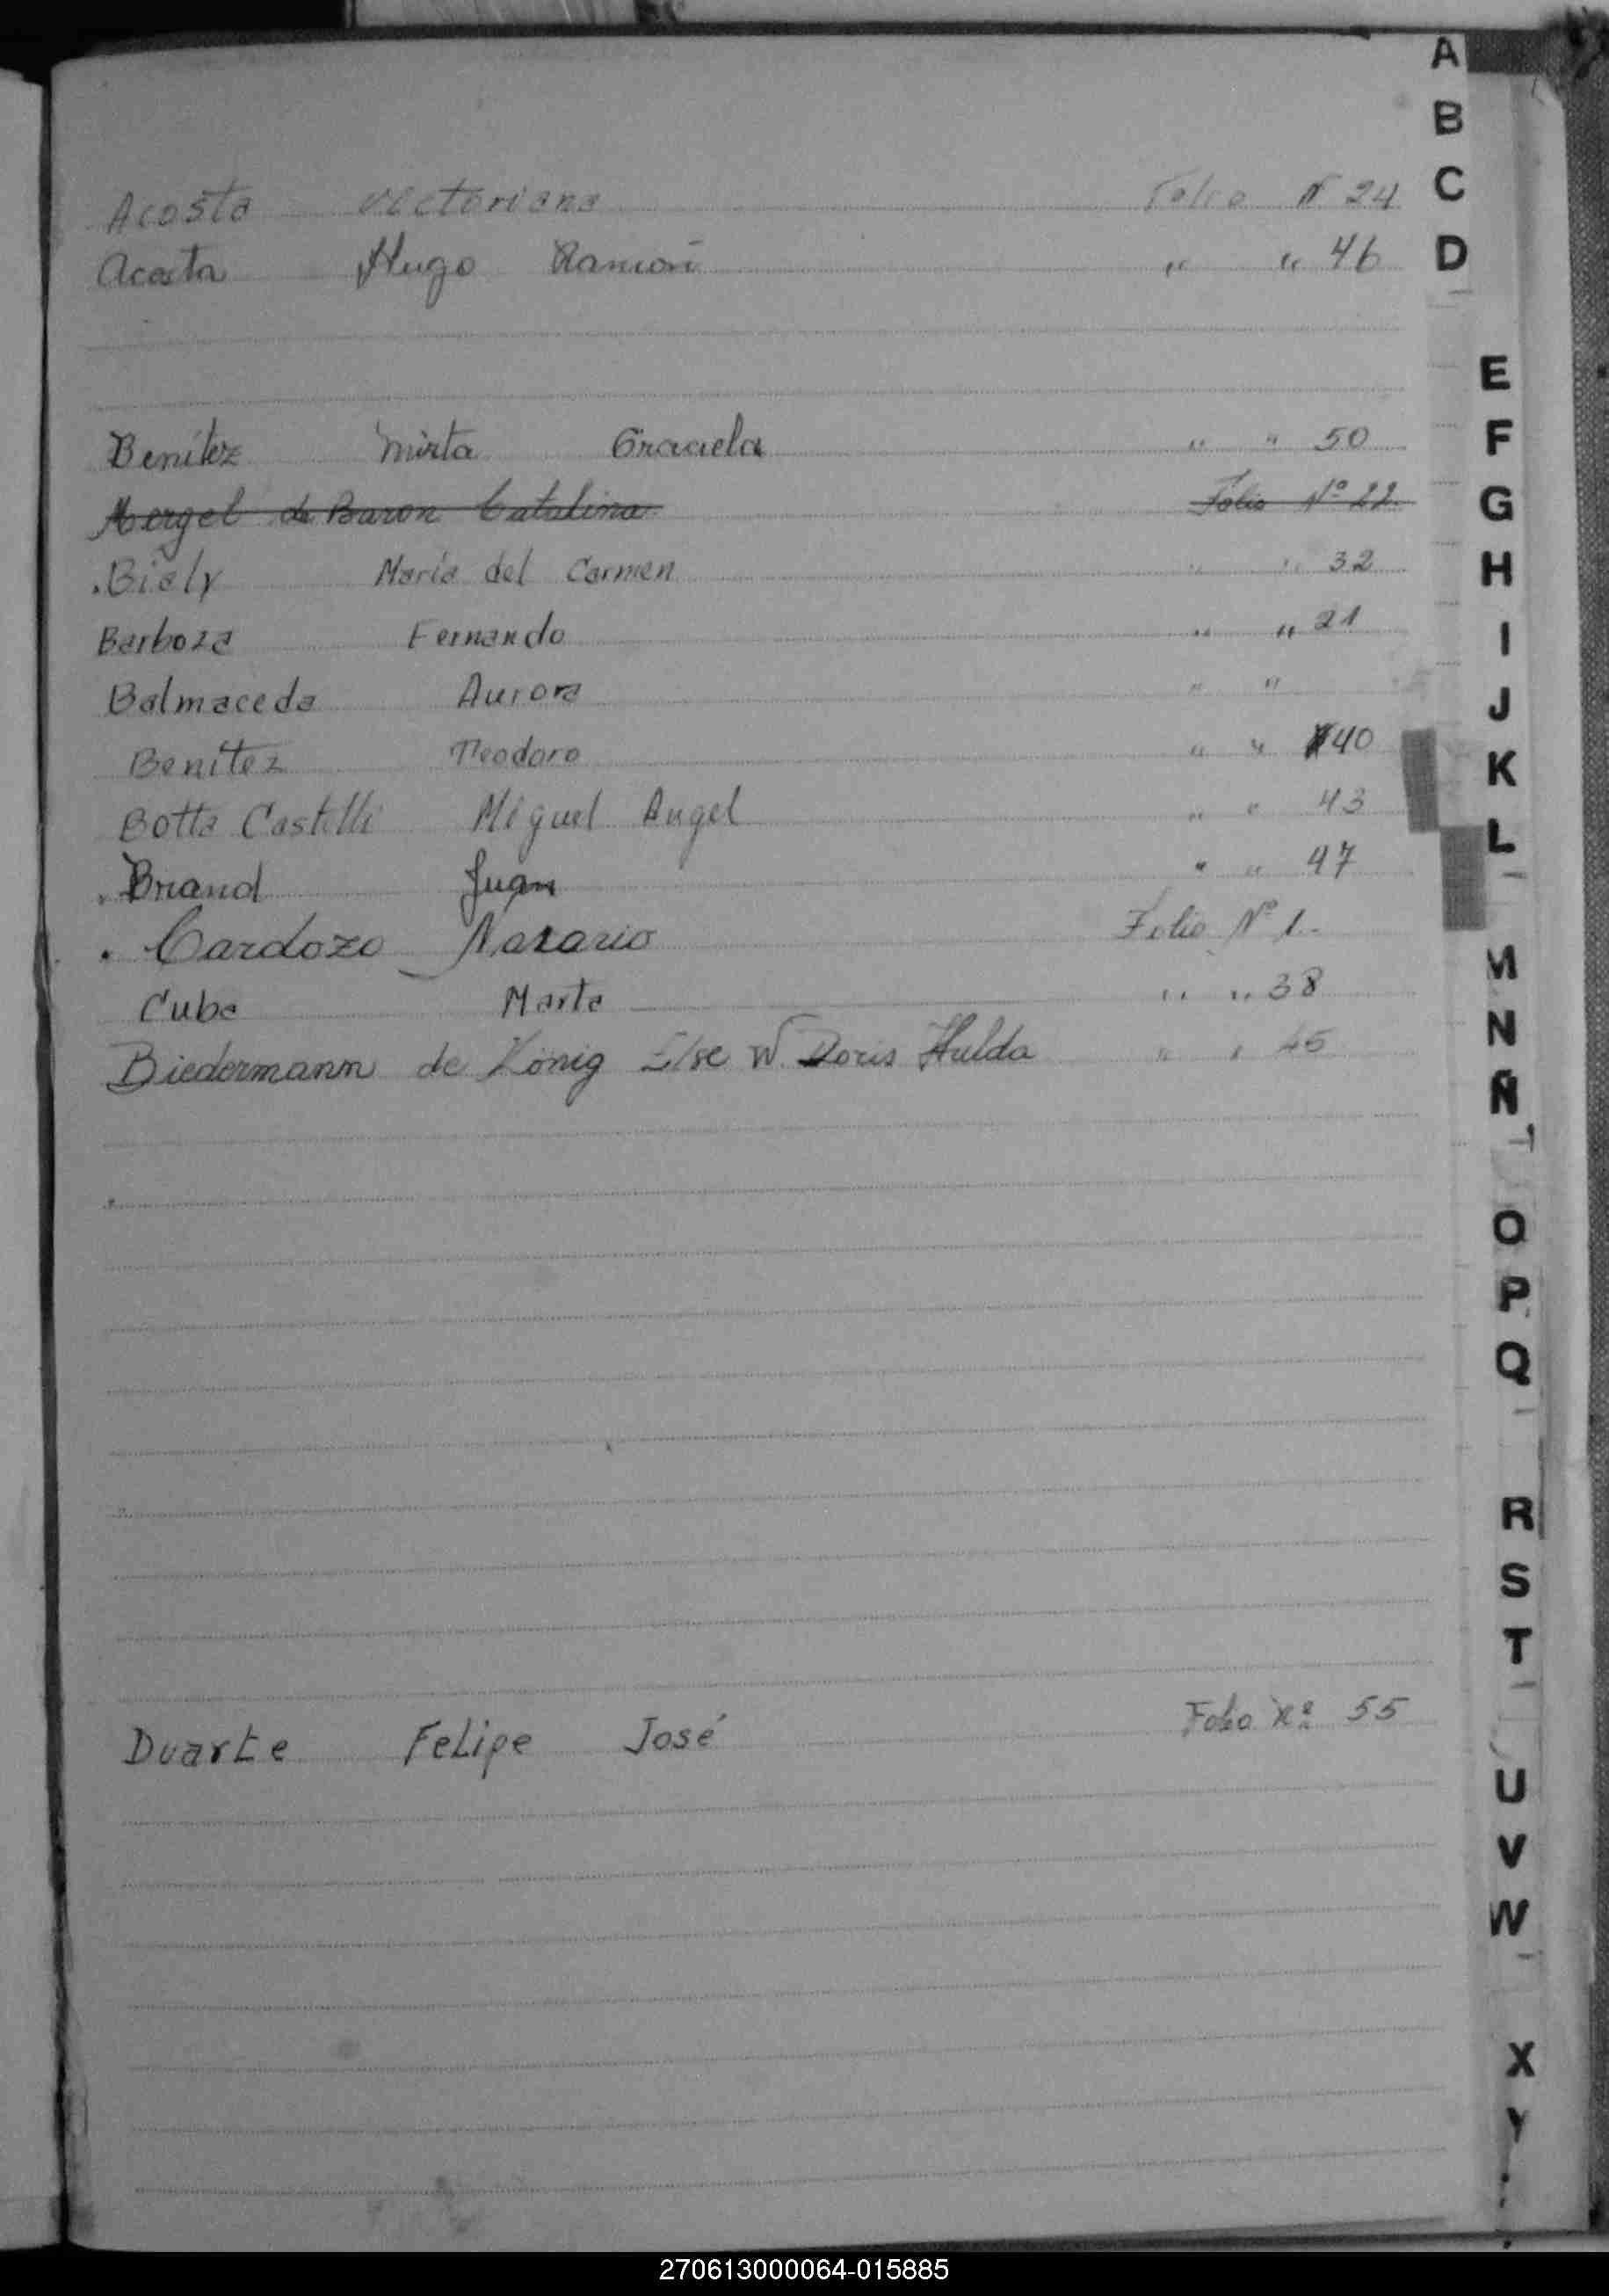 Acosta Victoriana Folio N 24
Acosta Hugo Ramón " " 46
Benítez Mirta Graciela " " 50
Mergel de Baron Catalina Folio Nº 22
Bialy María del Carmen " " 32
Barboza Fernando " " 21
Balmaceda Aurora " "
Benítez Teodoro " " 40
Botta Castelli Miguel Angel " " 43
Briand Juan " " 47
Cardozo Nazario Folio Nº 1.
Cuba Marta " " 38
Biedermann de König Else W. Doris Hulda " " 45
Duarte Felipe José Folio Nº 55
A
B
C
D
E
F
G
H
I
J
K
L
M
N
Ñ
O
P
Q
R
S
T
U
V
W
X
Y
270613000064-015885